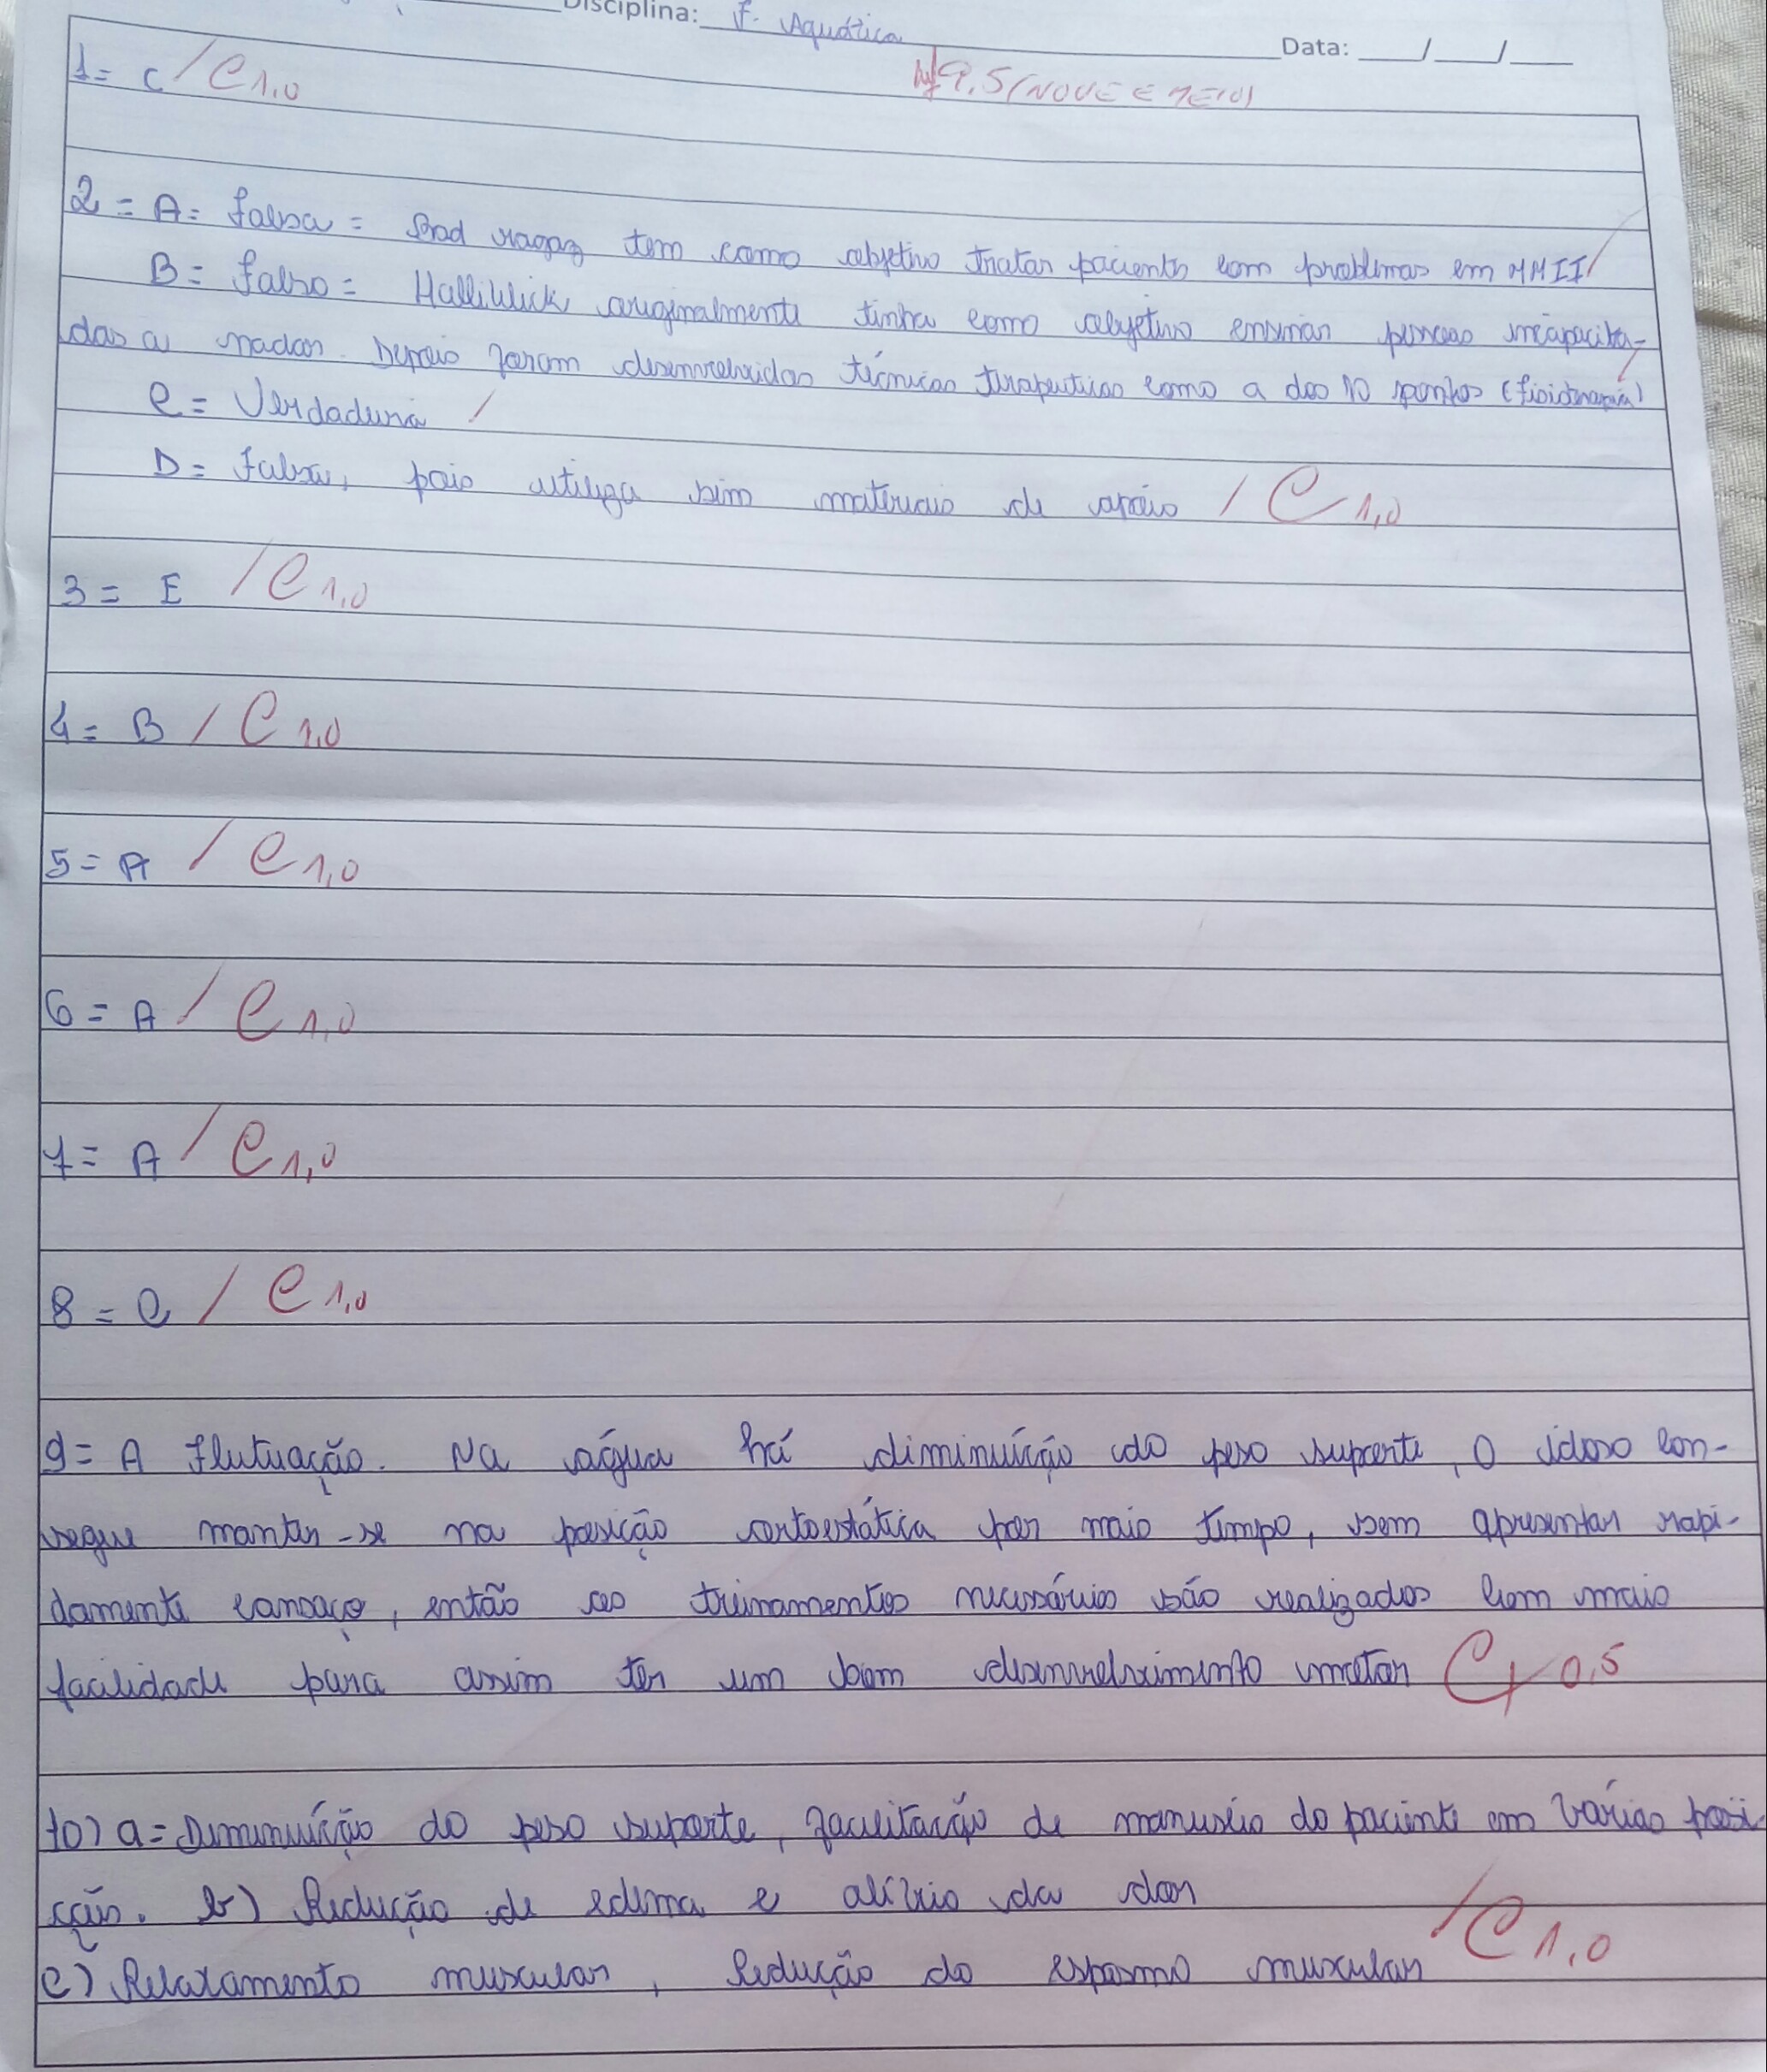 Disciplina: F. Aquática
Data: ___/___/___
1= C / C 1,0
9,5 (NOVE E MEIO)
2 = A= falsa = Bad ragaz tem como objetivo tratar pacients com problemas em MMII /
B= falso= Halliwick originalmente tinha como objetivo ensinar pessoas incapacita-
das a nadar. Depois foram desenvolvidas técnicas terapeuticas como a dos 10 pontos (fisioterapia) /
C= Verdadeira /
D= falsa, pois utiliza sim materiais de apoio / C 1,0
3= E / C 1,0
4= B / C 1,0
5= A / C 1,0
6= A / C 1,0
7= A / C 1,0
8= C / C 1,0
9= A flutuação. Na água há diminuíção do peso suporte, o idoso con-
segue manter-se na posição ortoestática por mais tempo, sem apresentar rapi-
damente cansaço, então os treinamentos necessários são realizados com mais
facilidade para assim ter um bom desenvolvimento motor C 0,5
10) a= Diminuíção do peso suporte, facilitação de manuseio do paciente em várias posi-
ções. b) Redução de edema e alívio da dor
c) Relaxamento muscular, Redução do espasmo muscular / C 1,0